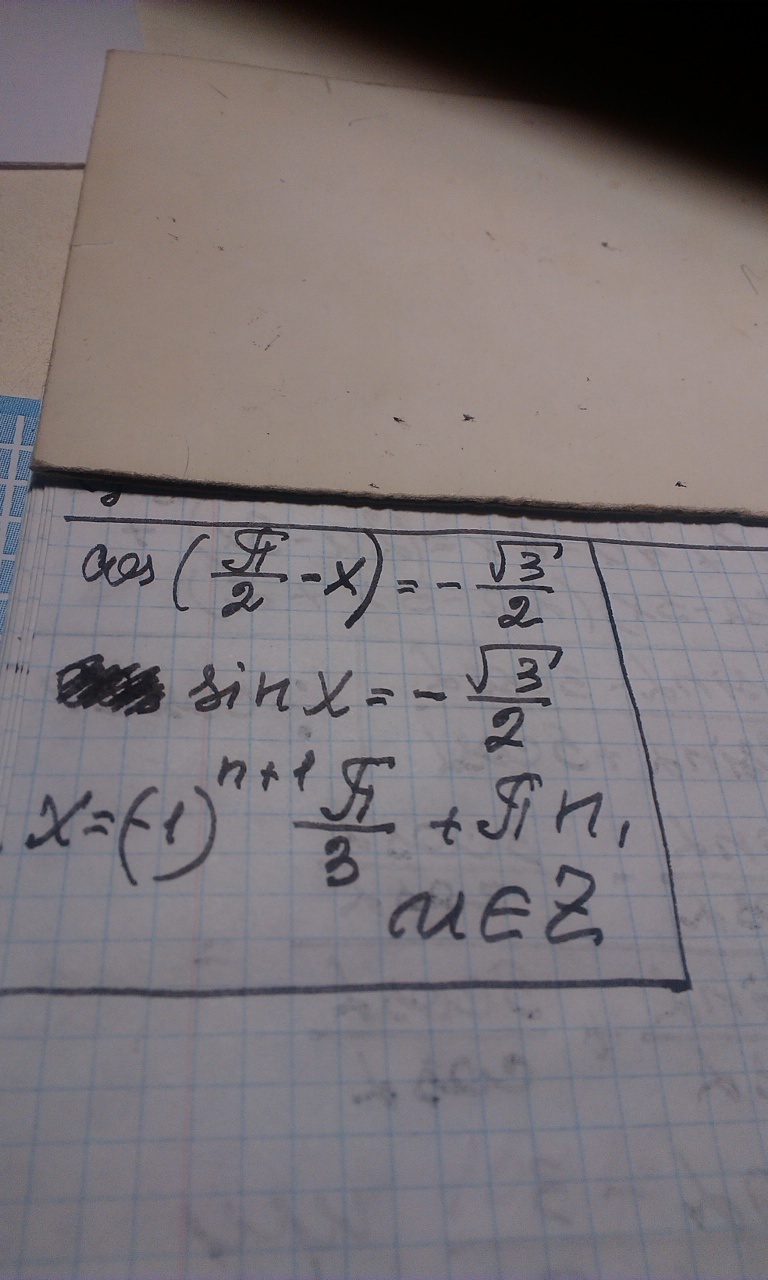 cos(π/2 - x) = - √3/2
sin x = - √3/2
x = (-1)ⁿ⁺¹ π/3 + πn,
n ∈ Z